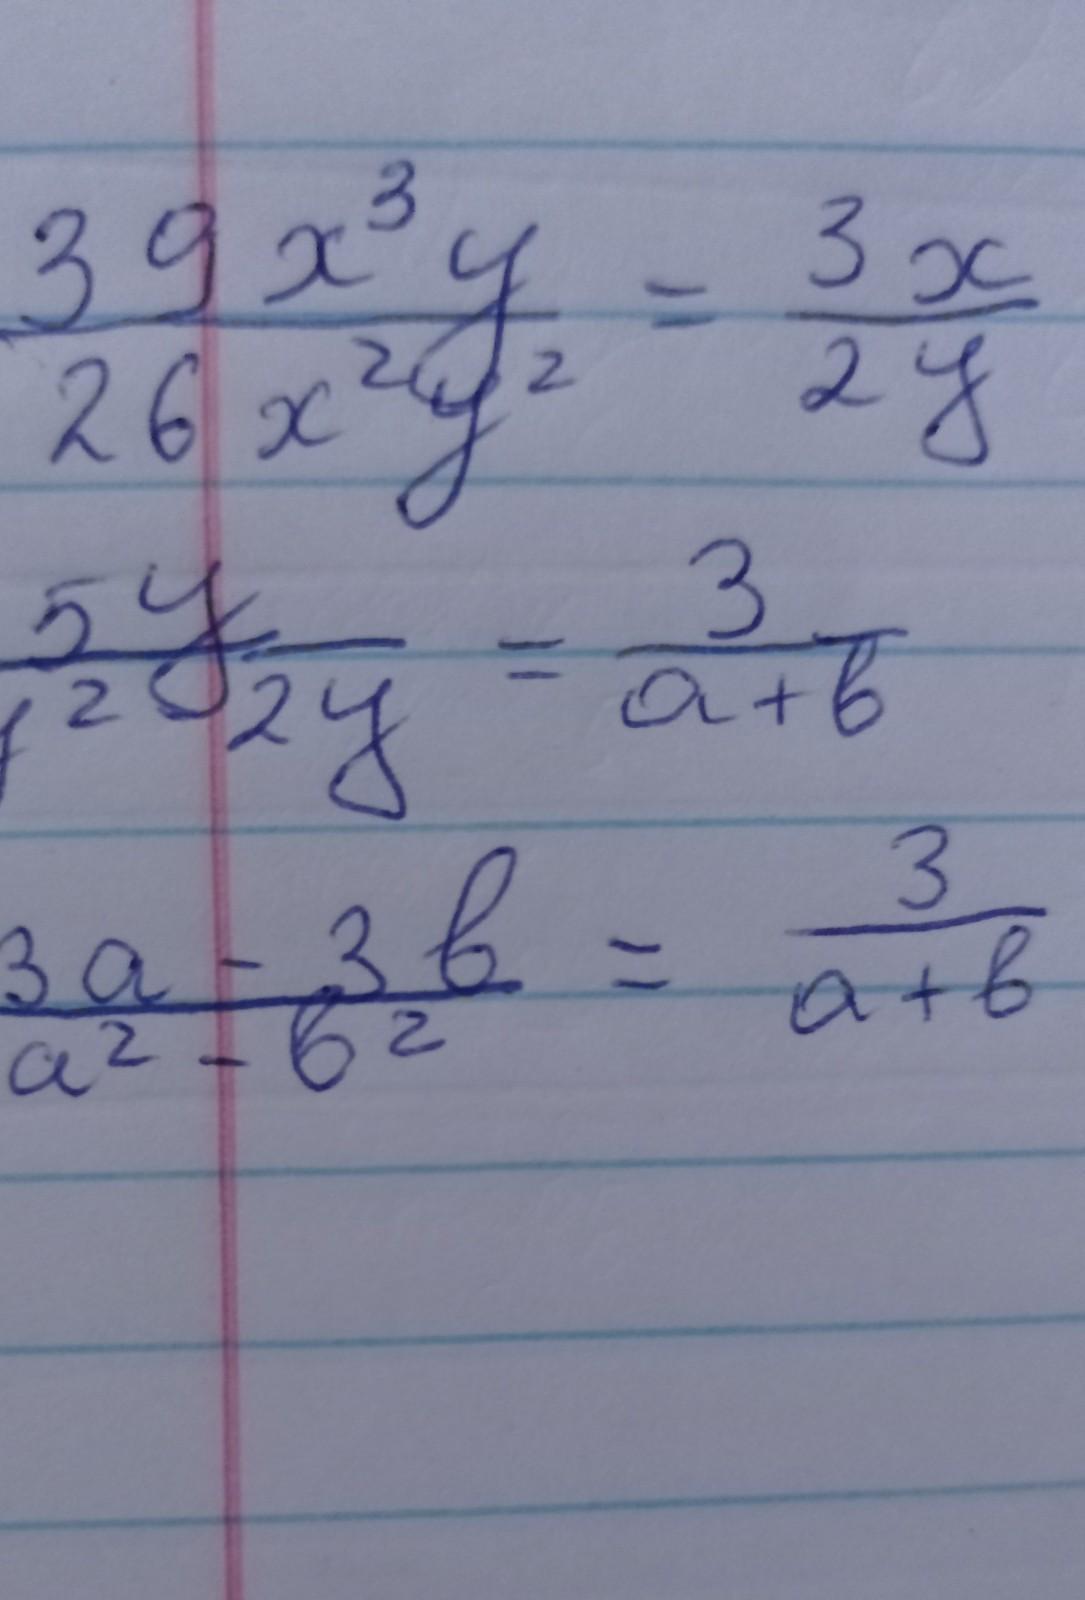 39x³y / 26x²y² = 3x / 2y
5y / y² 2y = 3 / a+b
3a - 3b / a² - b² = 3 / a+b